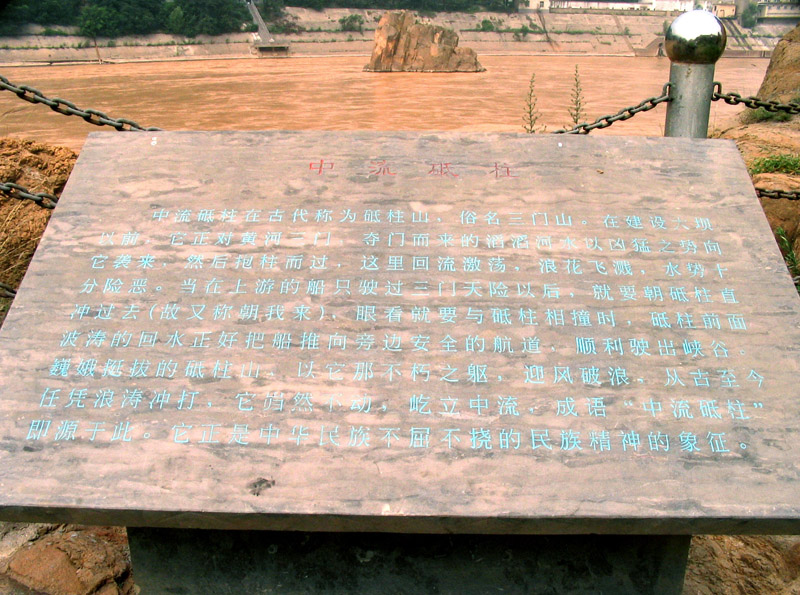 中流砥柱
中流砥柱在古代称为砥柱山，俗名三门山。在建设大坝
以前，它正对黄河三门，夺门而来的滔滔河水以凶猛之势向
它袭来，然后抱柱而过，这里回流激荡，浪花飞溅，水势十
分险恶。当在上游的船只驶过三门天险以后，就要朝砥柱直
冲过去(故又称朝我来)，眼看就要与砥柱相撞时，砥柱前面
波涛的回水正好把船推向旁边安全的航道，顺利驶出峡谷。
巍峨挺拔的砥柱山，以它那不朽之躯，迎风破浪，从古至今
任凭浪涛冲打，它岿然不动，屹立中流，成语“中流砥柱”
即源于此。它正是中华民族不屈不挠的民族精神的象征。